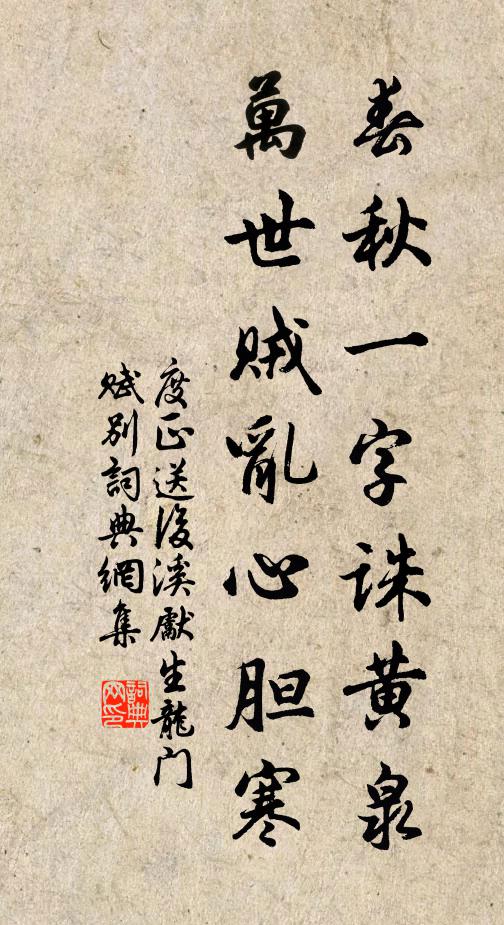 春秋一字誅黄泉
萬世賊亂心胆寒
度正送後溪獻生龍门
赋别詞典網集
詞典网印